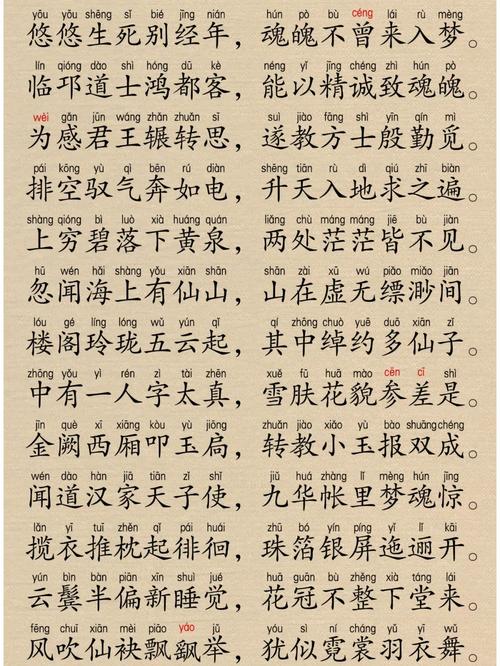 yōu yōu shēng sǐ bié jīng nián hún pò bù céng lái rù mèng
悠悠生死别经年，魂魄不曾来入梦。
lín qióng dào shì hóng dū kè néng yǐ jīng chéng zhì hún pò
临邛道士鸿都客，能以精诚致魂魄。
wèi gǎn jūn wáng zhǎn zhuǎn sī suì jiào fāng shì yīn qín mì
为感君王辗转思，遂教方士殷勤觅。
pái kōng yù qì bēn rú diàn shēng tiān rù dì qiú zhī biàn
排空驭气奔如电，升天入地求之遍。
shàng qióng bì luò xià huáng quán liǎng chù máng máng jiē bù jiàn
上穷碧落下黄泉，两处茫茫皆不见。
hū wén hǎi shàng yǒu xiān shān shān zài xū wú piāo miǎo jiān
忽闻海上有仙山，山在虚无缥渺间。
lóu gé líng lóng wǔ yún qǐ qí zhōng chuò yuē duō xiān zǐ
楼阁玲珑五云起，其中绰约多仙子。
zhōng yǒu yì rén zì tài zhēn xuě fū huā mào cēn cī shì
中有一人字太真，雪肤花貌参差是。
jīn què xī xiāng kòu yù jiōng zhuǎn jiào xiǎo yù bào shuāng chéng
金阙西厢叩玉扃，转教小玉报双成。
wén dào hàn jiā tiān zǐ shǐ jiǔ huá zhàng lǐ mèng hún jīng
闻道汉家天子使，九华帐里梦魂惊。
lǎn yī tuī zhěn qǐ pái huái zhū bó yín píng yǐ lǐ kāi
揽衣推枕起徘徊，珠箔银屏迤逦开。
yún bìn bàn piān xīn shuì jué huā guān bù zhěng xià táng lái
云鬓半偏新睡觉，花冠不整下堂来。
fēng chuī xiān mèi piāo yáo jǔ yóu sì ní cháng yǔ yī wǔ
风吹仙袂飘飖举，犹似霓裳羽衣舞。